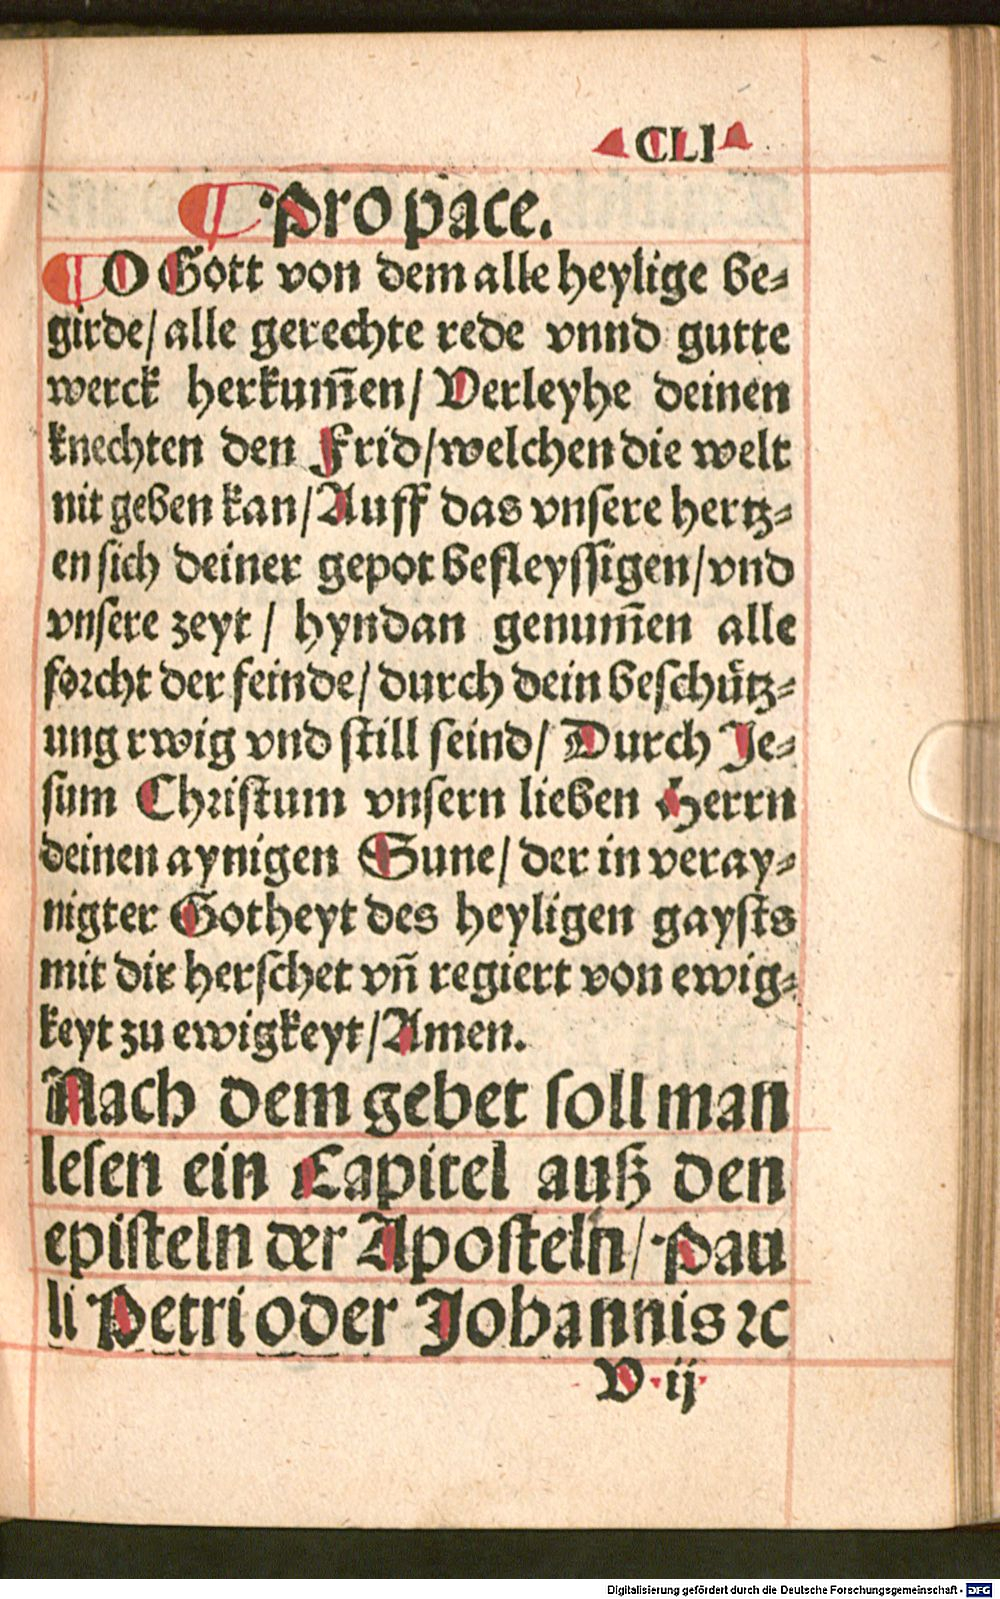 CLI
Pro pace.
O Gott von dem alle heylige be⸗
girde/ alle gerechte rede vnnd gutte
werck herkum̄en/ Verleyhe deinen
knechten den Frid/ welchen die welt
nit geben kan/ Auff das vnſere hertz⸗
en ſich deiner gepot befleyſſigen/ vnd
vnſere zeyt / hyndan genum̄en alle
forcht der feinde/ durch dein beſchuͤtz⸗
ung rwig vnd ſtill ſeind/ Durch Je⸗
ſum Chriſtum vnſern lieben Herrn
deinen aynigen Sune/ der in veray⸗
nigter Gotheyt des heyligen gayſts
mit dir herſchet vn̄ regiert von ewig⸗
keyt zu ewigkeyt/ Amen.
Nach dem gebet ſoll man
leſen ein Capitel auß den
epiſteln der Apoſteln/ Pau
li Petri oder Johannis ꝛc
V ij
Digitalisierung gefördert durch die Deutsche Forschungsgemeinschaft - DFG